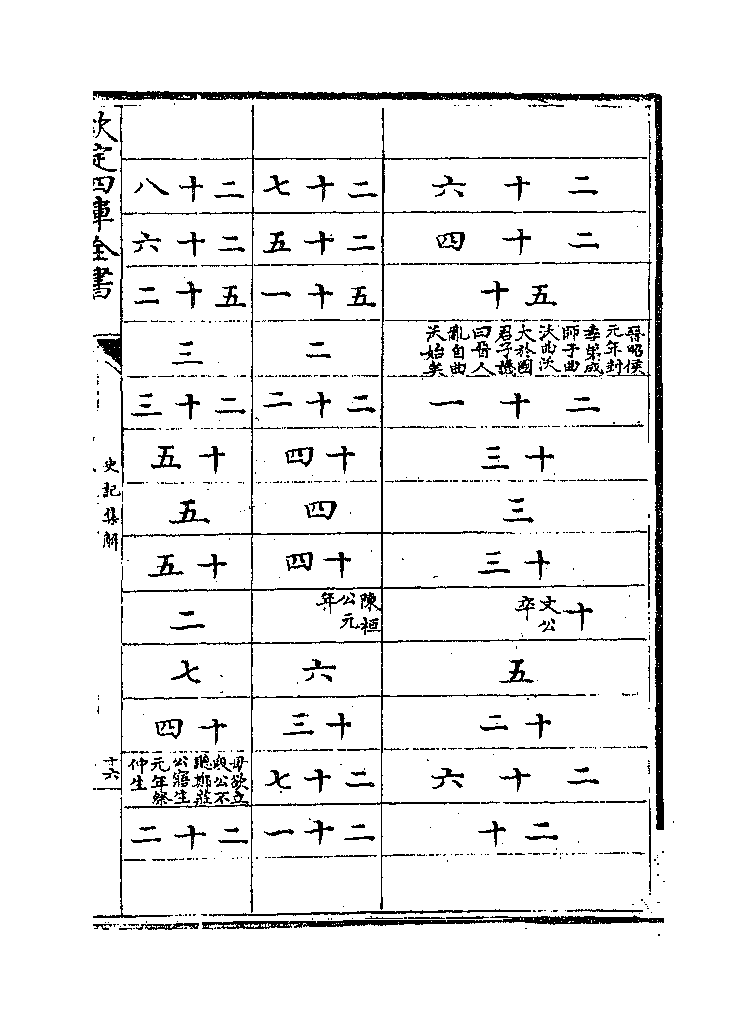 二十六
二十四
五十
晉昭侯
元年封
季弟成
師于曲
沃曲沃
大於國
君子譏
曰晉人
亂自曲
沃始矣
二十一
十三
三
十三
十
文公
卒
五
十二
二十六
二十
二十七
二十五
五十一
二
二十二
十四
四
十四
陳桓
公元
年
六
十三
二十七
二十一
二十八
二十六
五十二
三
二十三
十五
五
十五
二
七
十四
母欲立
段公不
聽鄭莊
公寤生
元年祭
仲生
二十二
欽定四庫全書
史記集解
十六